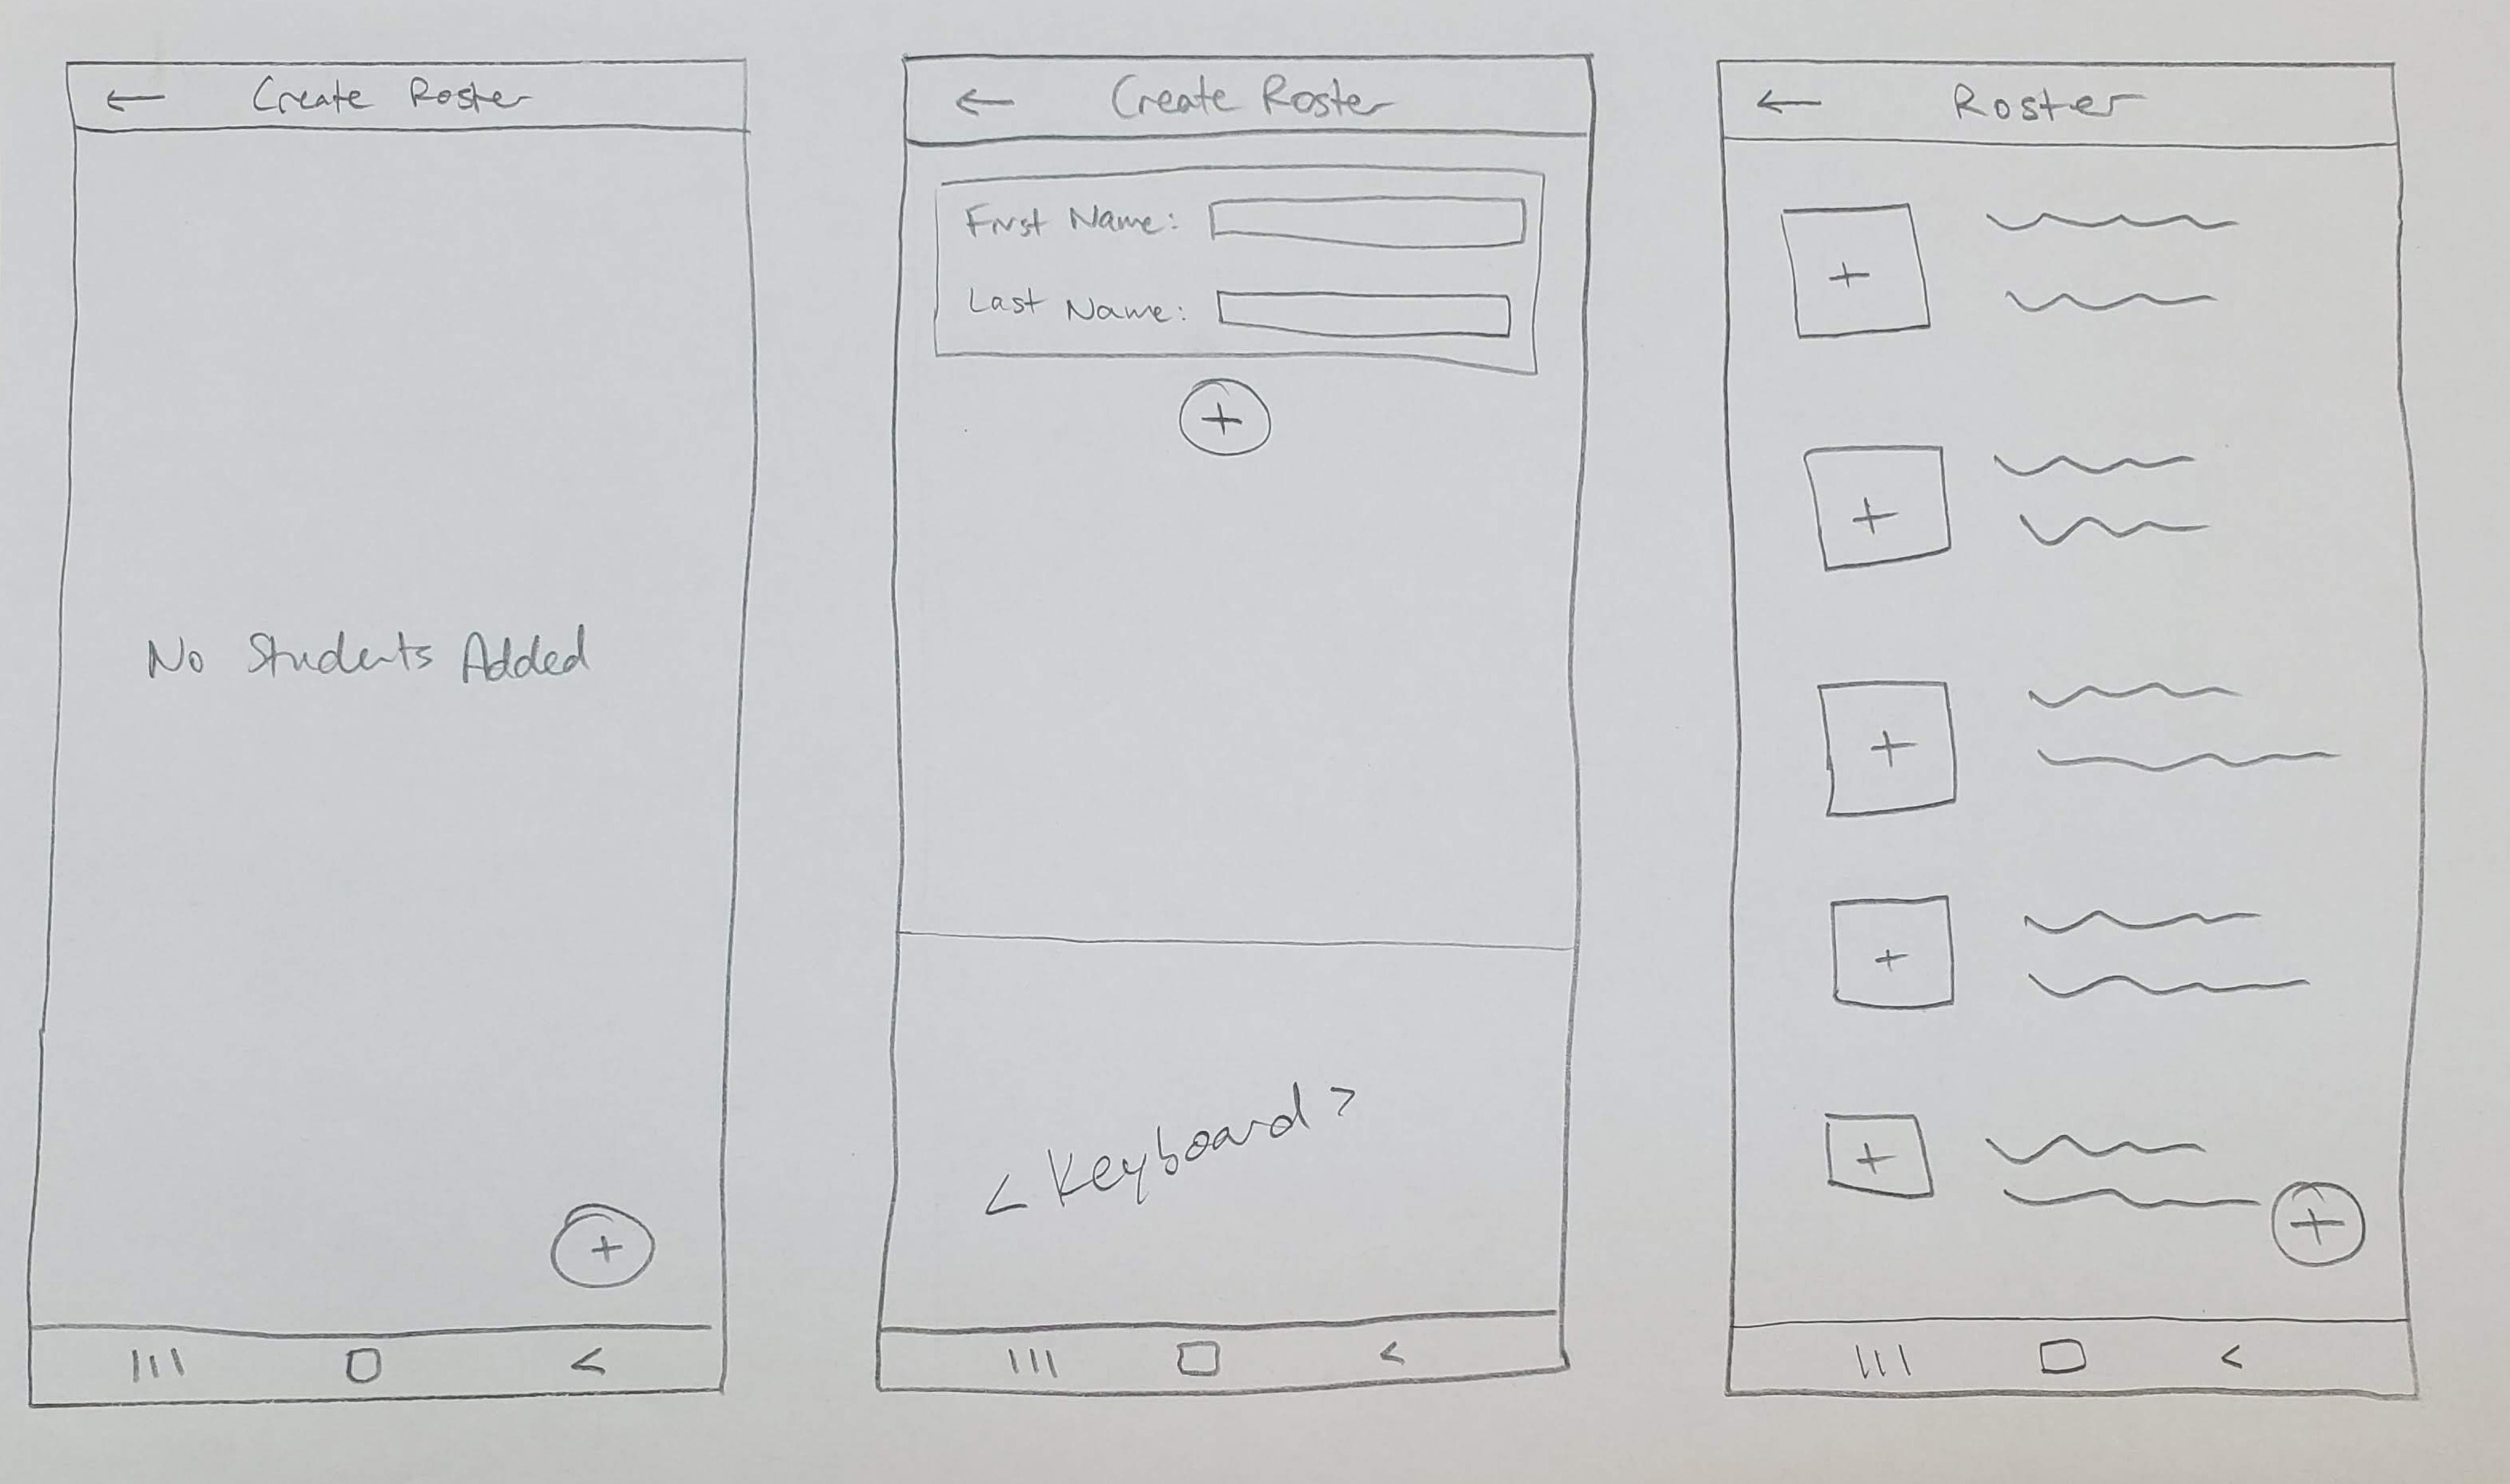 Create Roster
No Students Added
+
Create Roster
First Name:
Last Name:
+
< Keyboard >
Roster
+
+
+
+
+
+